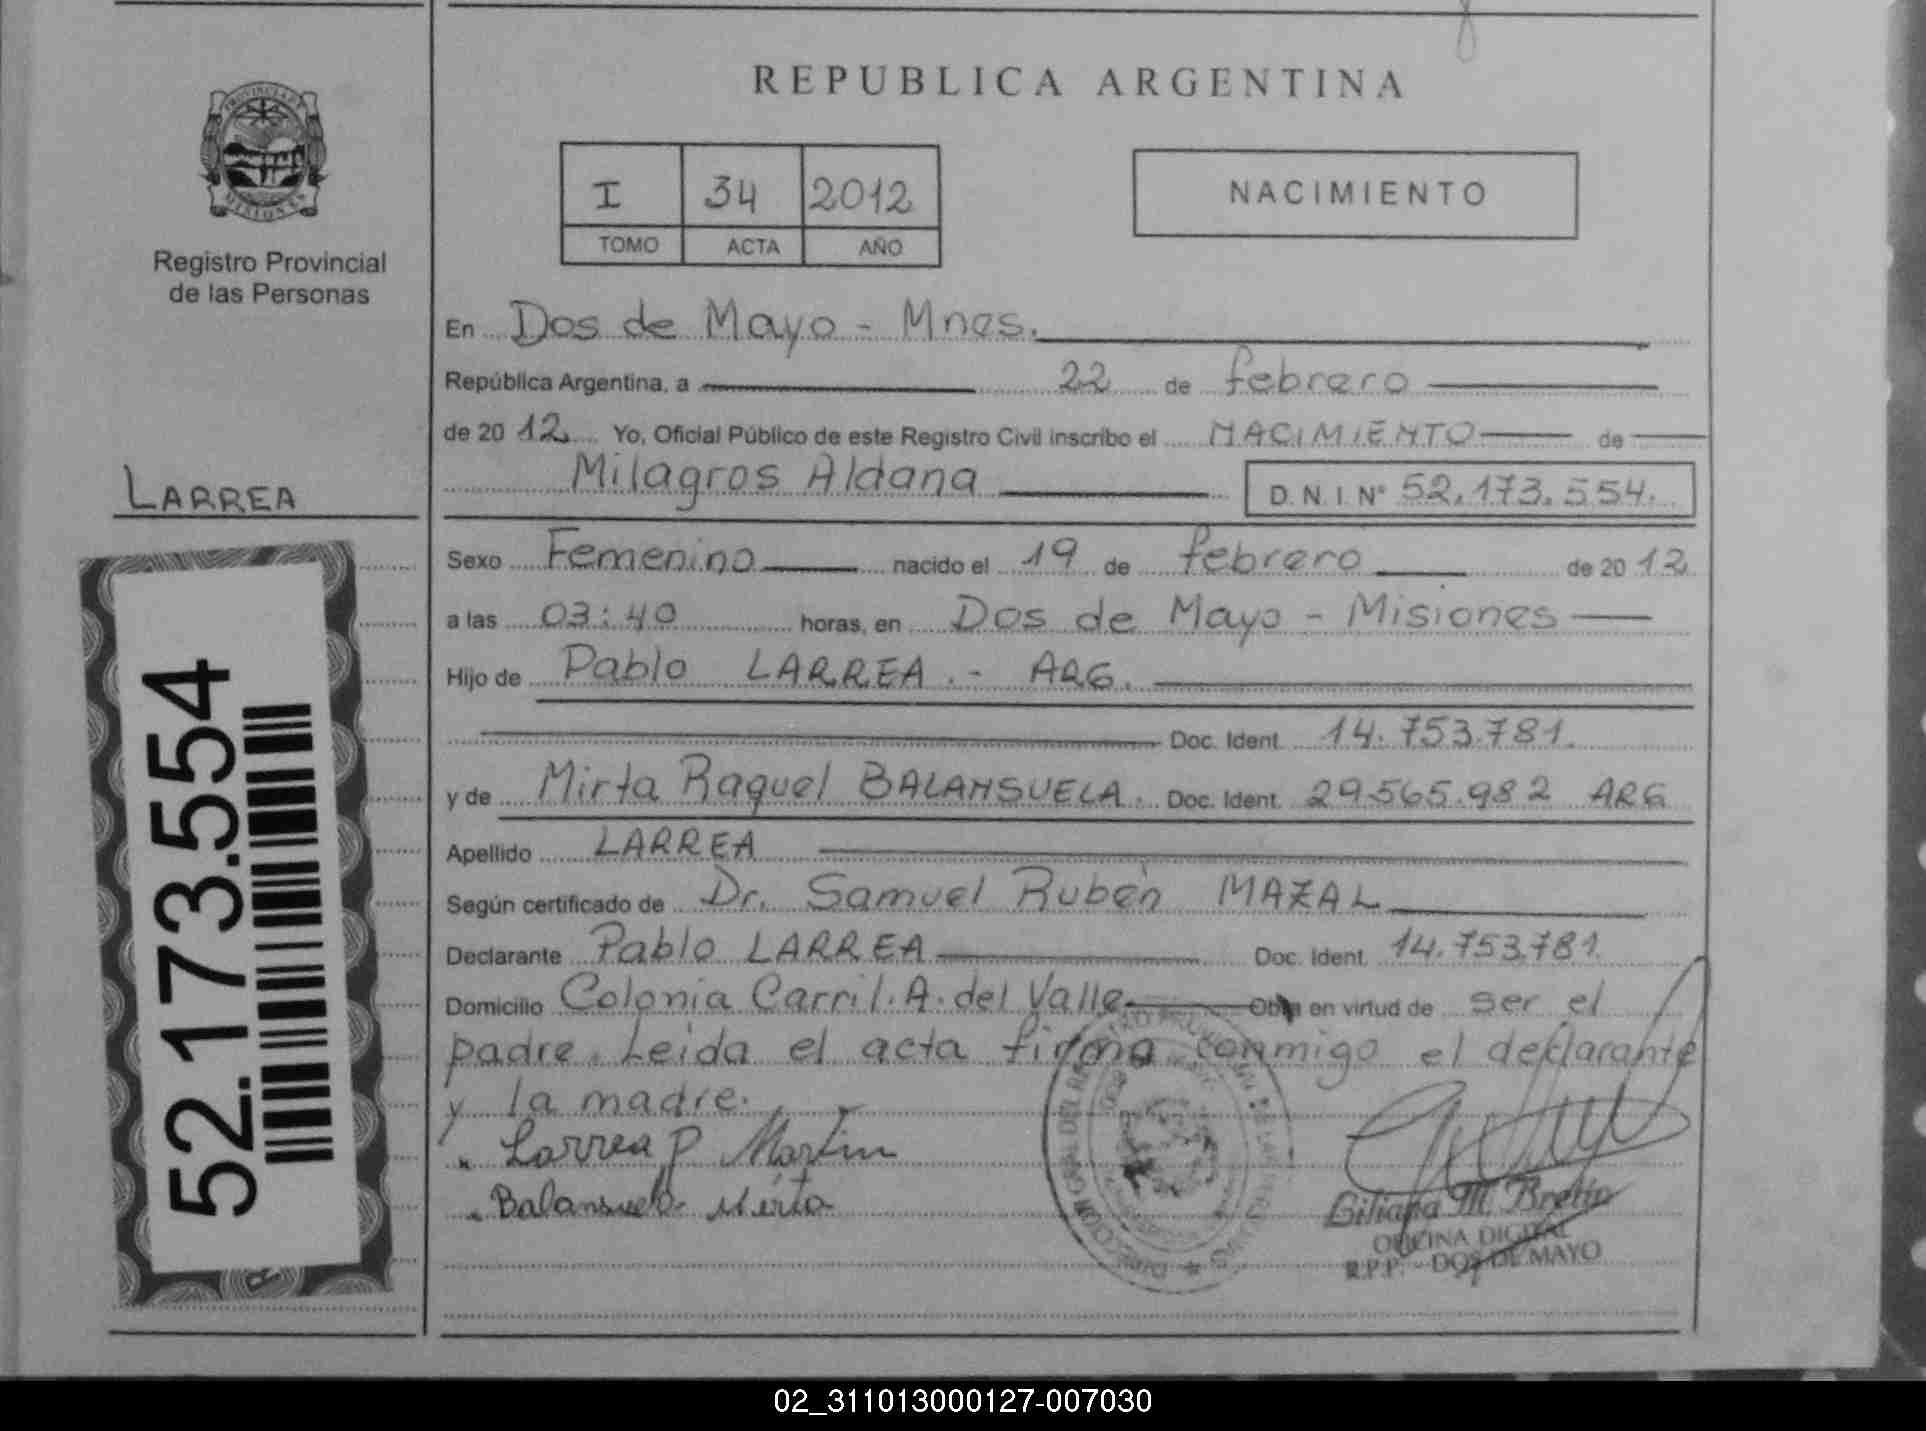 REPUBLICA ARGENTINA
PROVINCIA DE
MISIONES
Registro Provincial
de las Personas
I 34 2012
TOMO ACTA AÑO
NACIMIENTO
En Dos de Mayo - Mnes.
República Argentina, a 22 de febrero
de 2012 Yo, Oficial Público de este Registro Civil inscribo el NACIMIENTO de
LARREA
Milagros Aldana D.N.I. Nº 52.173.554.
Sexo Femenino nacido el 19 de febrero de 2012
a las 03:40 horas, en Dos de Mayo - Misiones
Hijo de Pablo LARREA.- ARG.
Doc. Ident. 14.753.781.
y de Mirta Raquel BALANSUELA. Doc. Ident. 29.565.982 ARG
Apellido LARREA
Según certificado de Dr. Samuel Rubén MAZAL
Declarante Pablo LARREA Doc. Ident. 14.753.781.
Domicilio Colonia Carril. A. del Valle Obra en virtud de ser el
padre. Leida el acta firma conmigo el declarante
y la madre.
Larrea P Martin
Balansuela Mirta
52.173.554
DIRECCION GRAL DEL REGISTRO PROVINCIAL DE LAS PERSONAS
Giliana M. Bretin
OFICINA DIGITAL
R.P.P. - DOS DE MAYO
02_311013000127-007030